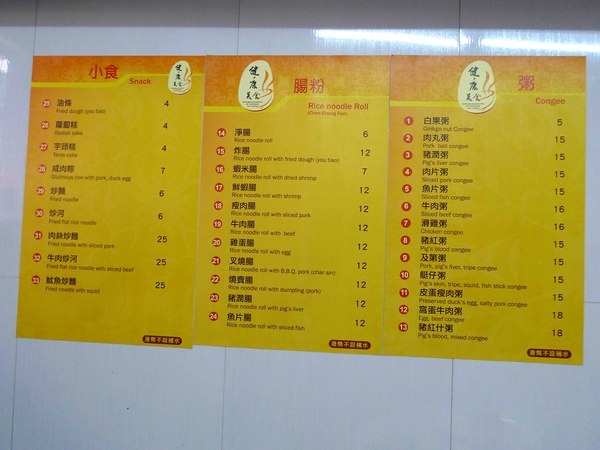 小食
Snack
25 油條 4
Fried dough (you tiao)
26 蘿蔔糕 4
Radish cake
27 芋頭糕 4
Taros cake
28 咸肉粽 7
Glutinous rice with pork, duck egg
29 炒麵 6
Fried noodle
30 炒河 6
Fried flat rice noodle
31 肉絲炒麵 25
Fried noodle with sliced pork
32 牛肉炒河 25
Fried flat rice noodle with sliced beef
33 魷魚炒麵 25
Fried noodle with squid
健康美食
腸粉
Rice noodle Roll
(Chee Cheong Fan)
14 淨腸 6
Rice noodle roll
15 炸腸 12
Rice noodle roll with fried dough (you tiao)
16 蝦米腸 7
Rice noodle roll with dried shrimp
17 鮮蝦腸 12
Rice noodle roll with shrimp
18 瘦肉腸 12
Rice noodle roll with sliced pork
19 牛肉腸 12
Rice noodle roll with beef
20 雞蛋腸 12
Rice noodle roll with egg
21 叉燒腸 12
Rice noodle roll with B.B.Q. pork (char sin)
22 燒賣腸 12
Rice noodle roll with dumpling (pork)
23 豬潤腸 12
Rice noodle roll with pig's liver
24 魚片腸 12
Rice noodle roll with sliced fish
健康美食
粥
Congee
1 白果粥 5
Ginkgo nut Congee
2 肉丸粥 15
Pork ball congee
3 豬潤粥 15
Pig's liver congee
4 肉片粥 15
Sliced pork congee
5 魚片粥 15
Sliced fish congee
6 牛肉粥 16
Sliced beef congee
7 滑雞粥 16
Chicken congee
8 豬紅粥 15
Pig's blood congee
9 及第粥 15
Pork, pig's liver, tripe congee
10 艇仔粥 15
Pig's skin, tripe, squid, fish stick congee
11 皮蛋瘦肉粥 15
Preserved duck's egg, salty pork congee
12 窩蛋牛肉粥 18
Egg, beef congee
13 豬紅什粥 18
Pig's blood, mixed congee